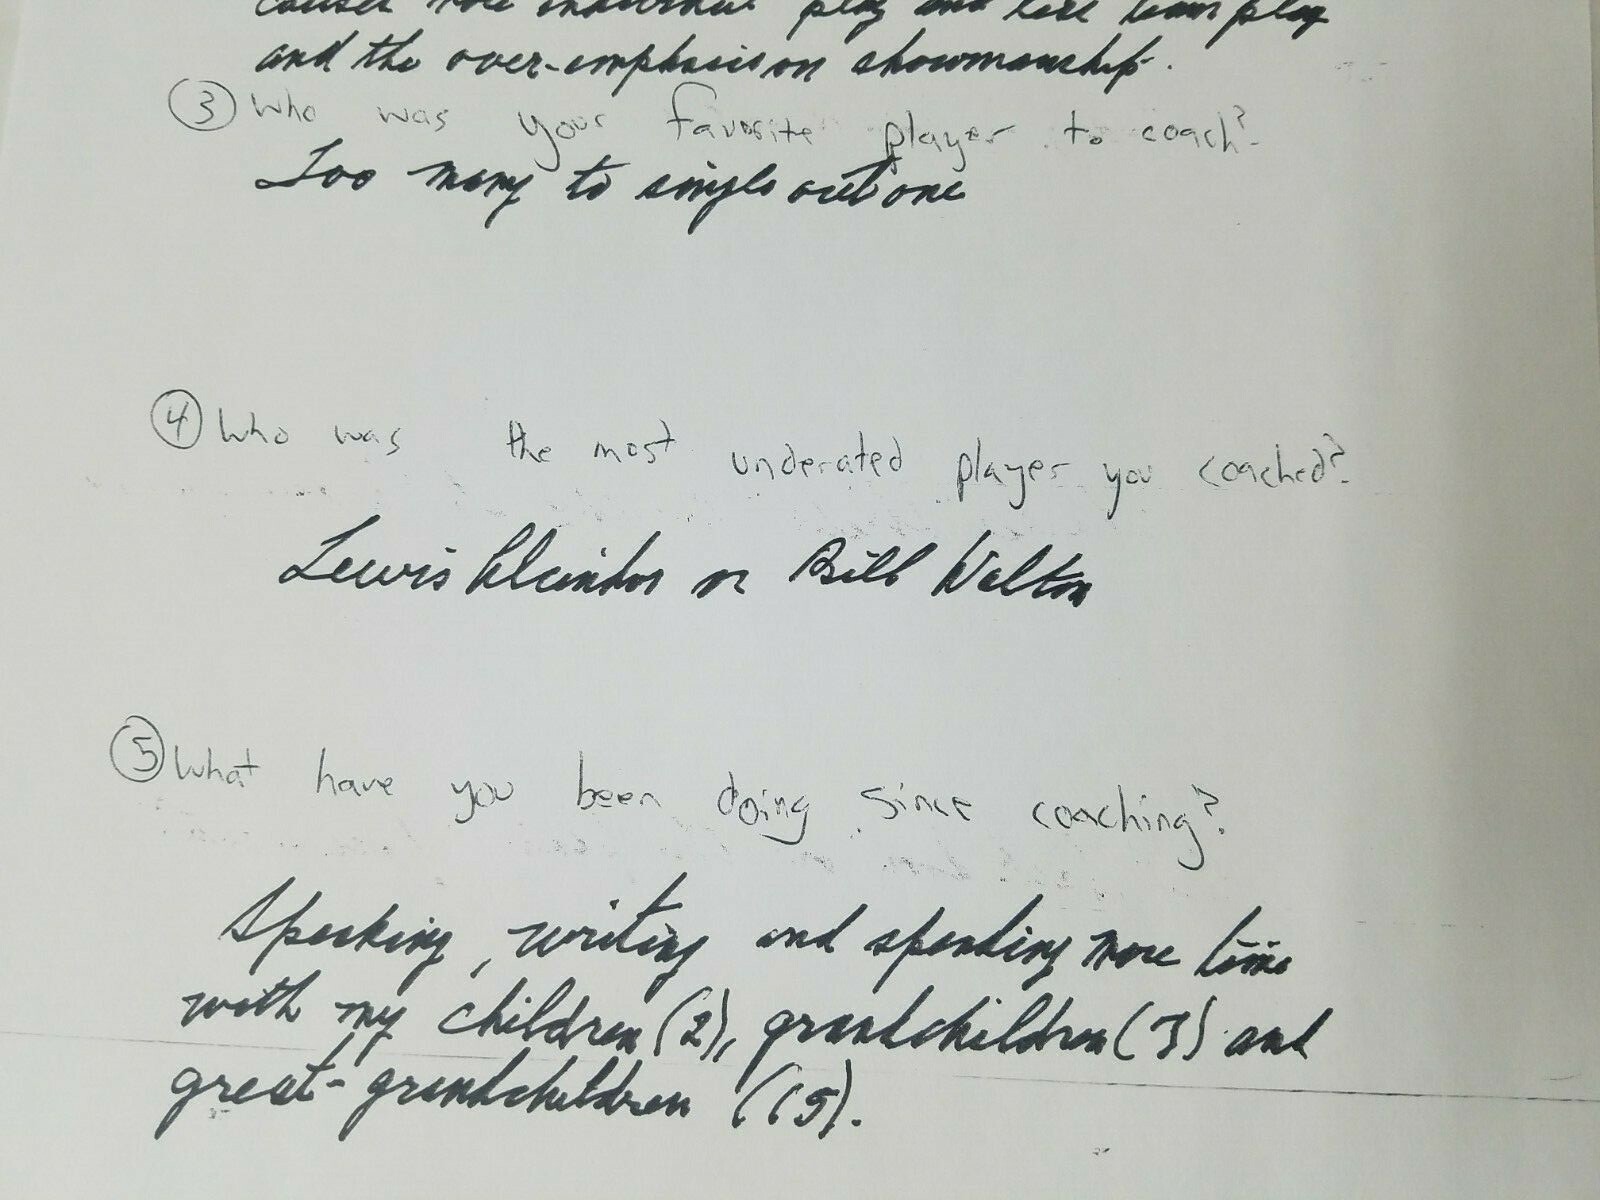 play and less team play
and the over-emphasis on showmanship.
3 Who was your favorite player to coach?
Too many to single out one
4 Who was the most underated player you coached?
Lewis Alcindor or Bill Walton
5 What have you been doing since coaching?
Speaking, writing and spending more time
with my children (2), grandchildren (7) and
great-grandchildren (15).